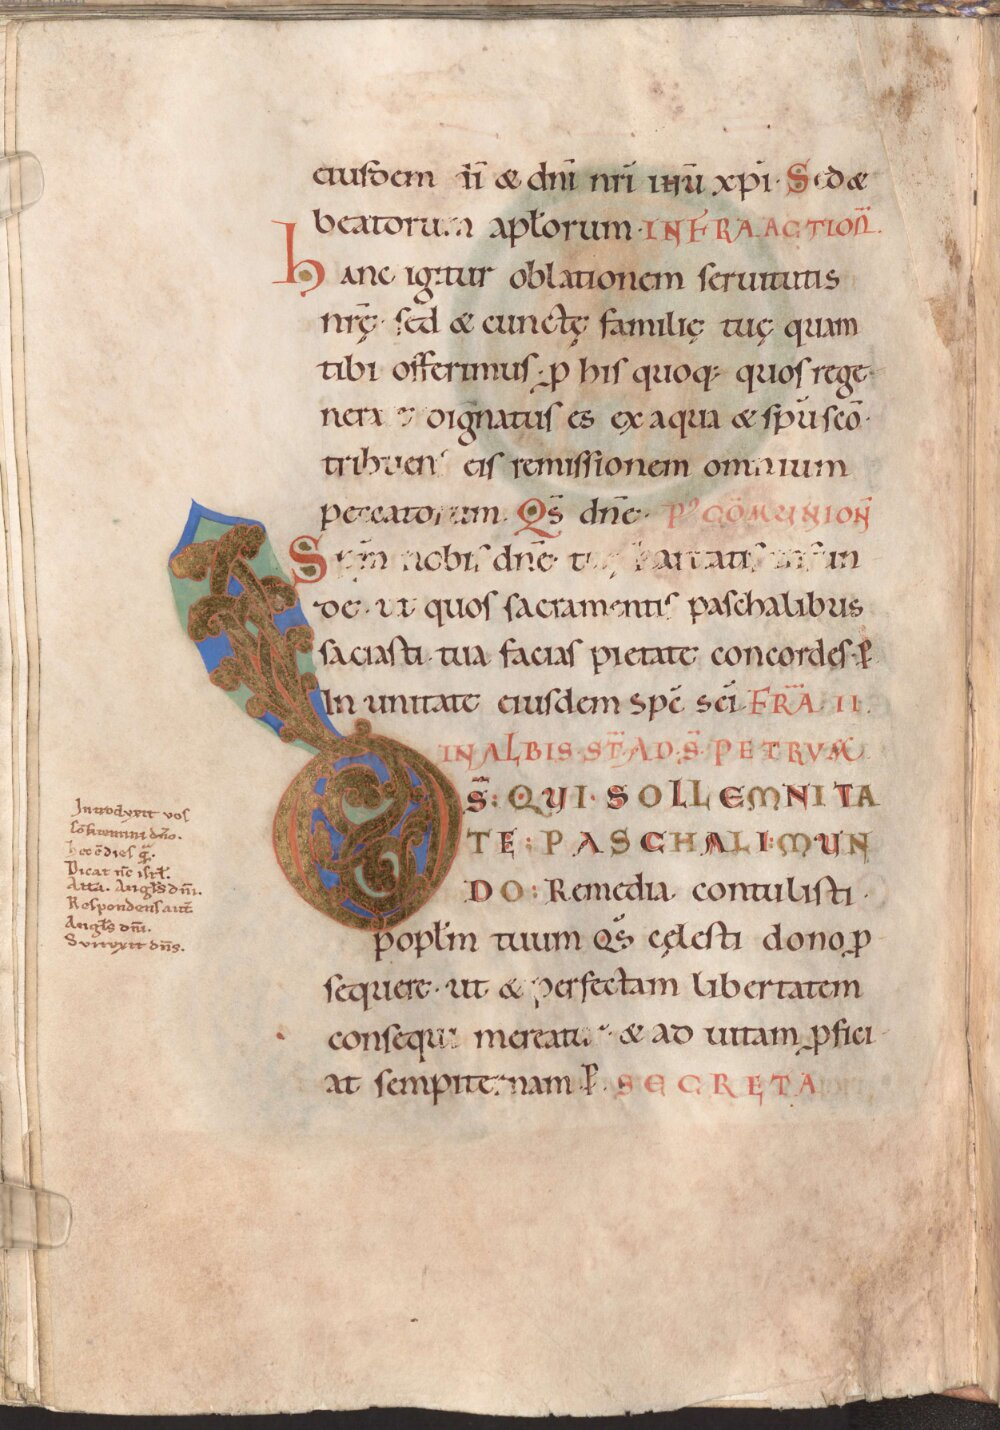 eiusdem ii̅ & dn̅i nr̅i ihu̅ xp̅i · Sed &
beatorum apl̅orum · INFRA ACTION̅.
hanc igitur oblationem seruitutis
nr̅ę · sed & cunctę familię tuę quam
tibi offerimus · ꝓ his quoq; quos rege
nera dignatus es ex aqua & sp̅u sco̅ ·
tribuens eis remissionem omnium
peccatorum. Qs̅ dn̅e · Po̅ CO̅MUNION̅
Sp̅m nobis dn̅e · tuę karitatis in
de · ut quos sacramentis paschalibus
saciasti · tua facias pietate concordes · ꝑ
In unitate eiusdem sp̅c sc̅i · FR̅A · II ·
IN ALBIS · ST̅ · AD · S̅ · PETRVM̅
Ds̅ : QUI · SOLLEMNITA
TE : PASCHALI · MUN
DO : Remedia contulisti ·
popl̅m tuum qs̅ cęlesti dono ꝓ
sequere · ut & perfectam libertatem
consequi mereatur · & ad uitam ꝓfici
at sempiternam ꝑ · SECRETA
Introduxit vos
Co̅fitemini dn̅o.
hec e̅ dies q̅.
Dicat nc̅ isrl̅.
Atta. Angl̅s dn̅i.
Respondens aut̅
Angl̅s dn̅i.
Surrexit dn̅s.